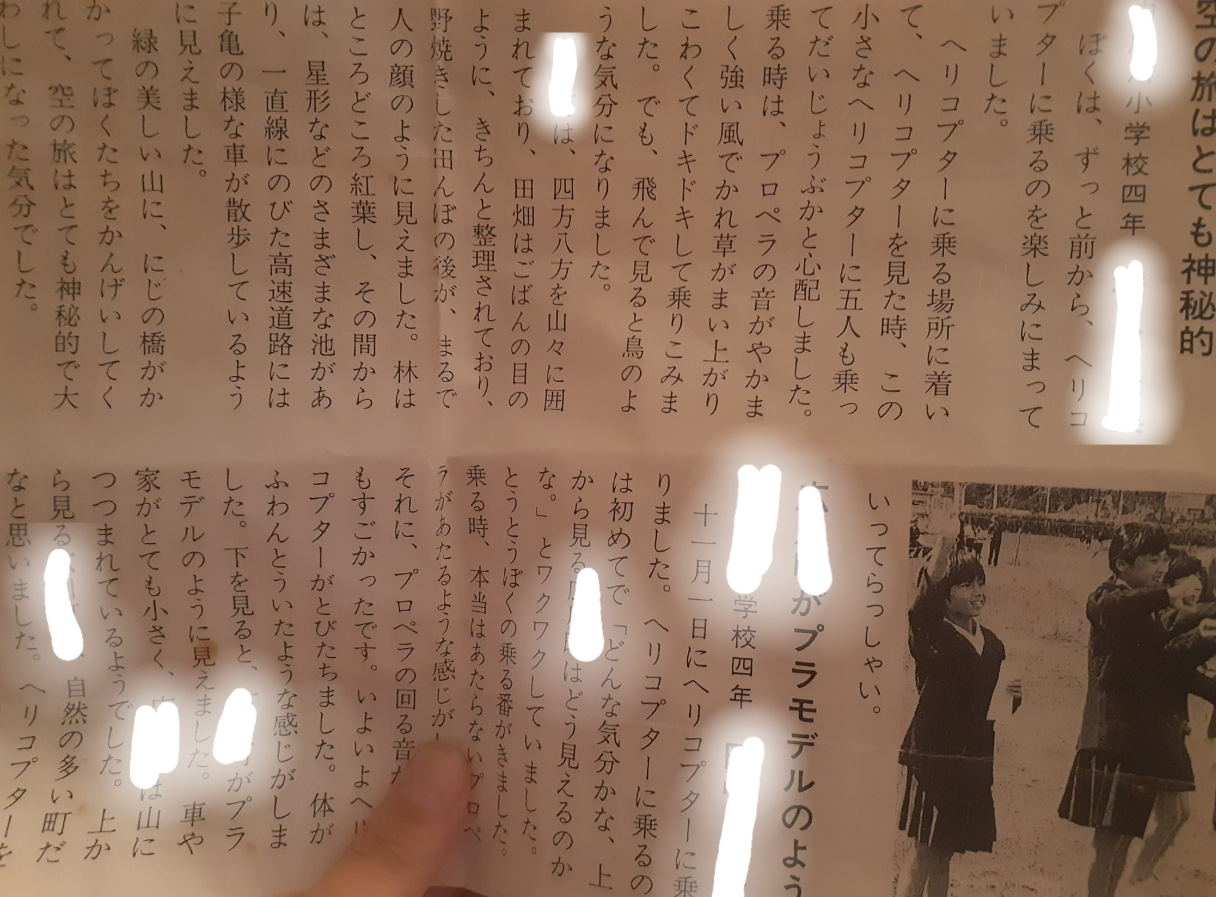 空の旅はとても神秘的
小学校四年
ぼくは、ずっと前から、ヘリコ
プターに乗るのを楽しみにまって
いました。
ヘリコプターに乗る場所に着い
て、ヘリコプターを見た時、この
小さなヘリコプターに五人も乗っ
てだいじょうぶかと心配しました。
乗る時は、プロペラの音がやかま
しく強い風でかれ草がまい上がり
こわくてドキドキして乗りこみま
した。でも、飛んで見ると鳥のよ
うな気分になりました。
は、四方八方を山々に囲
まれており、田畑はごばんの目の
ように、きちんと整理されており、
野焼きした田んぼの後が、まるで
人の顔のように見えました。林は
ところどころ紅葉し、その間から
は、星形などのさまざまな池があ
り、一直線にのびた高速道路には
子亀の様な車が散歩しているよう
に見えました。
緑の美しい山に、にじの橋がか
かってぼくたちをかんげいしてく
れて、空の旅はとても神秘的で大
わしになった気分でした。
いってらっしゃい。
がプラモデルのよう
学校四年
十一月一日にヘリコプターに乗
りました。ヘリコプターに乗るの
は初めてで「どんな気分かな、上
から見る はどう見えるのか
な。」とワクワクしていました。
とうとうぼくの乗る番がきました。
乗る時、本当はあたらないプロペ
ラがあたるような感じが
それに、プロペラの回る音が
もすごかったです。いよいよヘリ
コプターがとびたちました。体が
ふわんとういたような感じがしま
した。下を見ると、 がプラ
モデルのように見えました。車や
家がとても小さく、 は山に
つつまれているようでした。上か
ら見る 、自然の多い町だ
なと思いました。ヘリコプターを